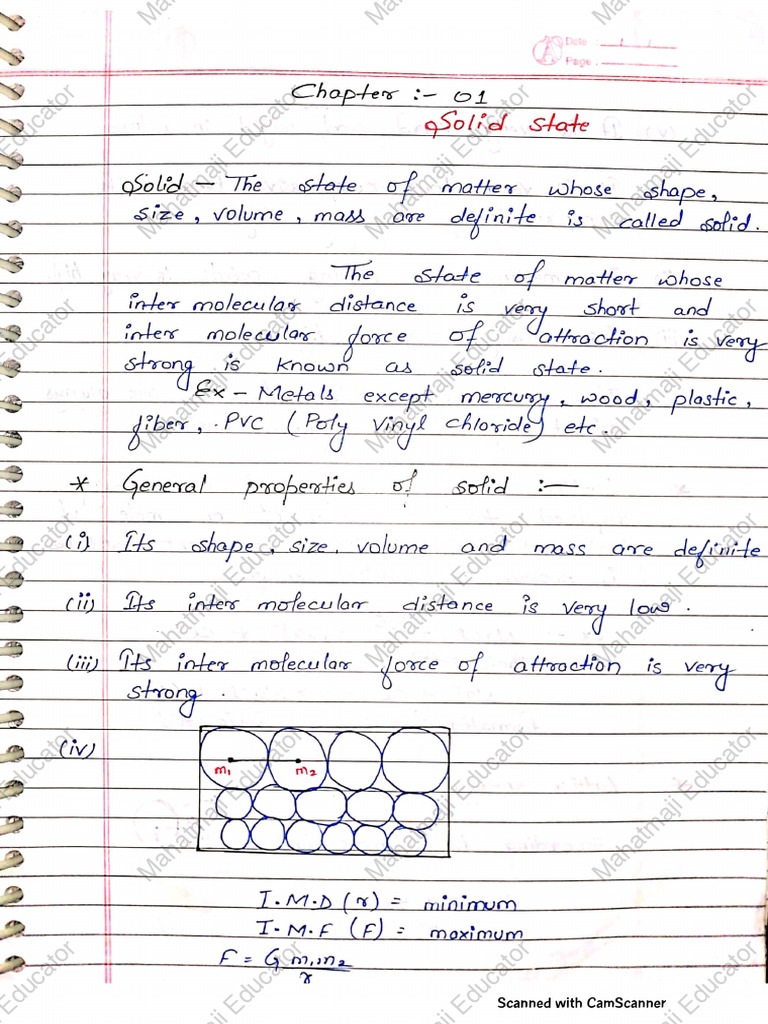 Date
Page
Chapter :- 01
Solid state
Solid - The state of matter whose shape,
size, volume, mass are definite is called solid.
The state of matter whose
inter molecular distance is very short and
inter molecular force of attraction is very
strong is known as solid state.
Ex - Metals except mercury, wood, plastic,
fiber, PVC (Poly vinyl chloride) etc.
* General properties of solid :-
(i) Its shape, size, volume and mass are definite
(ii) Its inter molecular distance is very low.
(iii) Its inter molecular force of attraction is very
strong.
(iv)
m1 m2
I.M.D (r) = minimum
I.M.F (F) = maximum
F = G m1m2
r
Mahatmaji Educator
Scanned with CamScanner